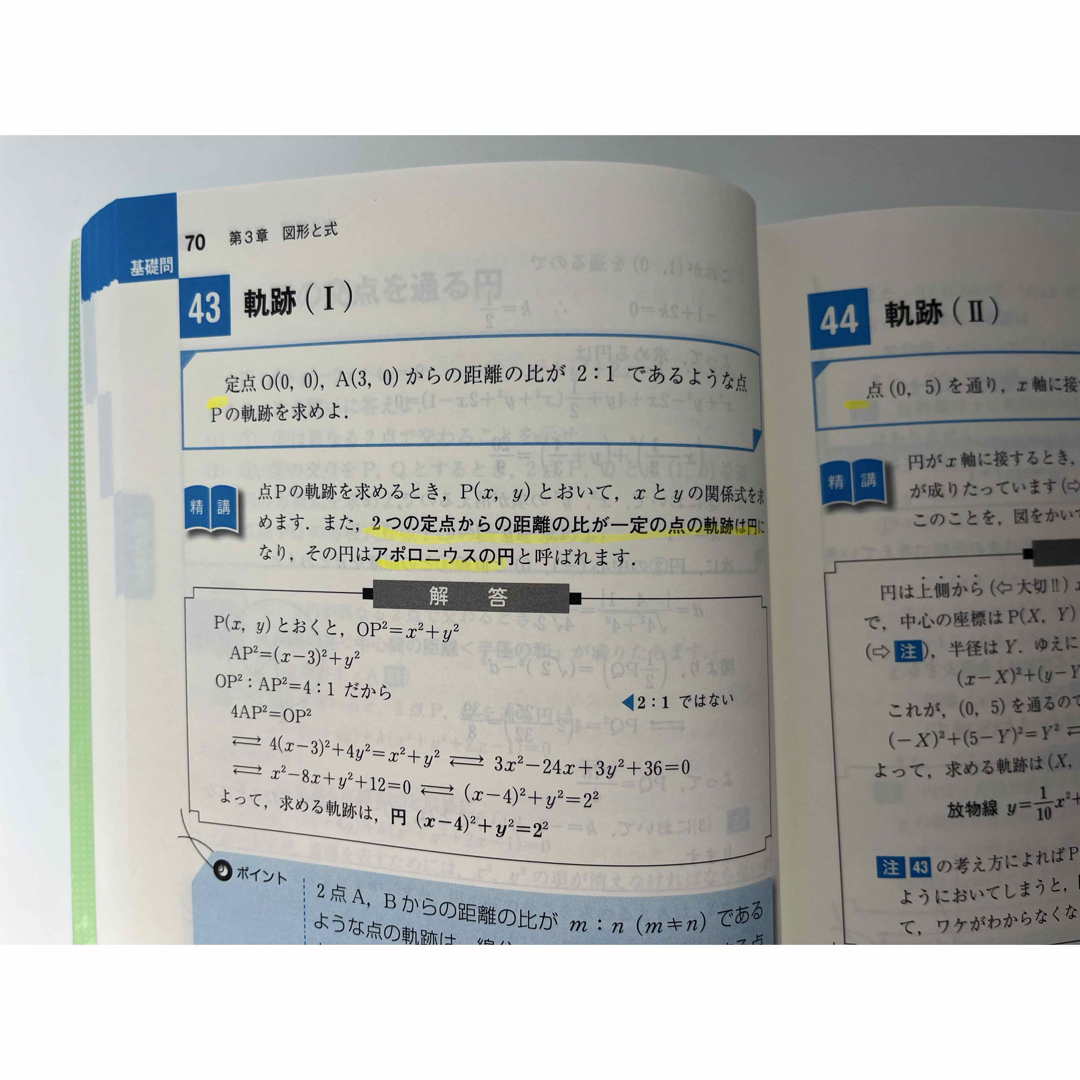 70 第3章 図形と式
基礎問
43 軌跡(Ⅰ)
定点 O(0, 0), A(3, 0) からの距離の比が 2:1 であるような点
Pの軌跡を求めよ.
精講
点Pの軌跡を求めるとき, P(x, y) とおいて, x と y の関係式を求
めます. また, 2つの定点からの距離の比が一定の点の軌跡は円に
なり, その円はアポロニウスの円と呼ばれます.
解答
P(x, y) とおくと, OP²=x²+y²
AP²=(x-3)²+y²
OP²:AP²=4:1 だから
◀2:1 ではない
4AP²=OP²
⟺ 4(x-3)²+4y²=x²+y² ⟺ 3x²-24x+3y²+36=0
⟺ x²-8x+y²+12=0 ⟺ (x-4)²+y²=2²
よって, 求める軌跡は, 円 (x-4)²+y²=2²
ポイント
2点A, Bからの距離の比が m:n (m≠n) である
ような点の軌跡は
44 軌跡(Ⅱ)
点 (0, 5) を通り, x 軸に接
精講
円が x 軸に接するとき,
が成りたっています (⇨
このことを, 図をかいて
円は上側から (⇦大切!!)
で, 中心の座標は P(X, Y)
(⇨注), 半径は Y. ゆえに
(x-X)²+(y-Y
これが, (0, 5) を通るので
(-X)²+(5-Y)²=Y²
よって, 求める軌跡は (X,
放物線 y=1/10 x²+
注 43 の考え方によればP
ようにおいてしまうと,
て, ワケがわからなくな